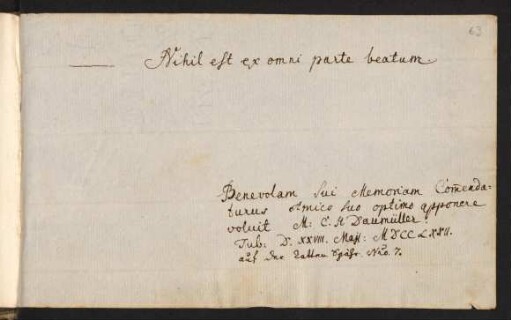 63
Nihil est ex omni parte beatum.
Benevolam sui Memoriam Comenda-
turus Amico suo optimo apponere
voluit M: C. H Daumüller.
Tub: D. XXVIII. Maji: MDCCLXXII.
auf